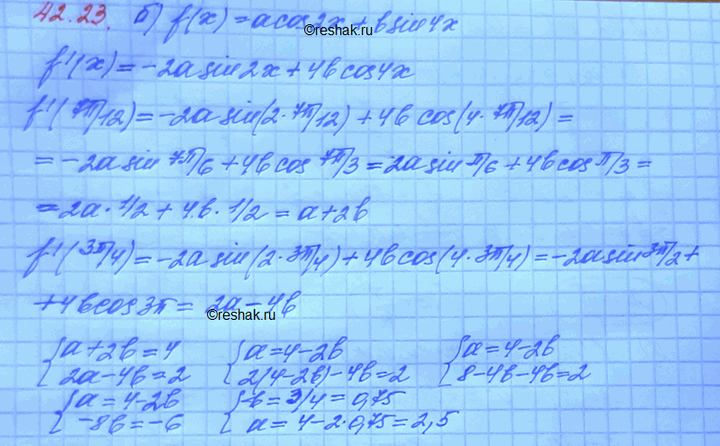 ©reshak.ru
42.23. б) f(x) = acos2x + bsin4x
f'(x) = -2asin2x + 4bcos4x
f'(7π/12) = -2asin(2·7π/12) + 4b cos(4·7π/12) =
= -2asin 7π/6 + 4bcos 7π/3 = 2asin π/6 + 4bcos π/3 =
= 2a·1/2 + 4b·1/2 = a+2b
f'(3π/4) = -2asin(2·3π/4) + 4bcos(4·3π/4) = -2asin 3π/2 +
+ 4bcos3π = 2a-4b
©reshak.ru
{a+2b=4 {a=4-2b {a=4-2b
{2a-4b=2 {2(4-2b)-4b=2 {8-4b-4b=2
{a=4-2b {b=3/4=0,75
{-8b=-6 {a=4-2·0,75=2,5